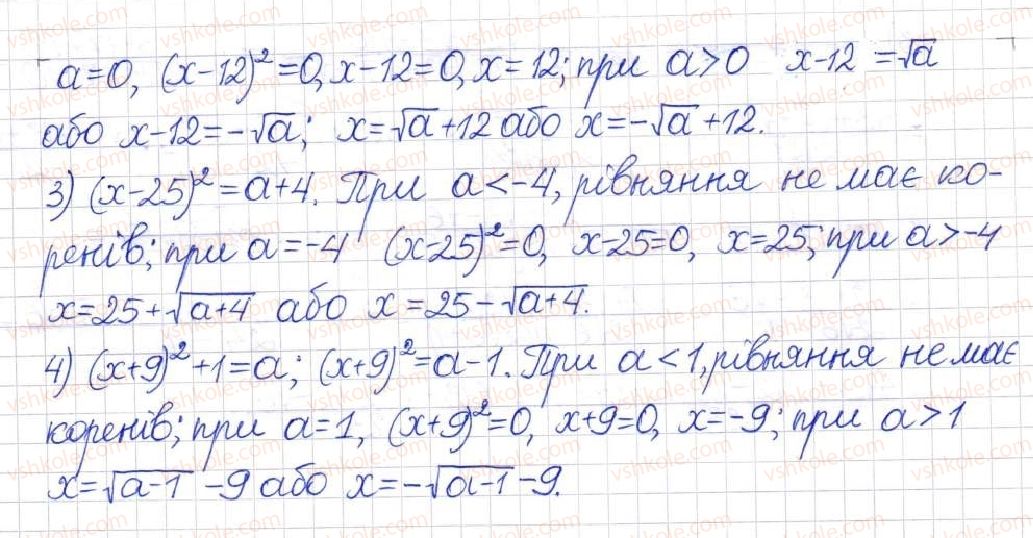 a=0, (x-12)²=0, x-12=0, x=12; при a>0 x-12 =√a
або x-12=-√a; x=√a+12 або x=-√a+12.
3) (x-25)²=a+4. При a<-4, рівняння не має ко-
ренів; при a=-4 (x-25)²=0, x-25=0, x=25; при a>-4
x=25+√(a+4) або x=25-√(a+4).
4) (x+9)²+1=a; (x+9)²=a-1. При a<1, рівняння не має
коренів; при a=1, (x+9)²=0, x+9=0, x=-9; при a>1
x=√(a-1) -9 або x=-√(a-1)-9.